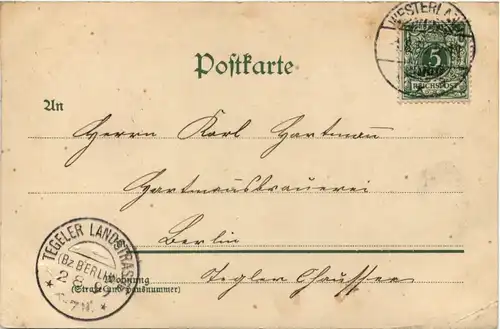 WESTERLAND
5
REICHSPOST
Postkarte
An
Herrn Karl Hartmann
Hartmannsbrauerei
Berlin
Tegler Chaussee
Wohnung
(Straße und Hausnummer)
TEGELER LANDSTRASSE
(Bz. BERLIN)
2 8
7